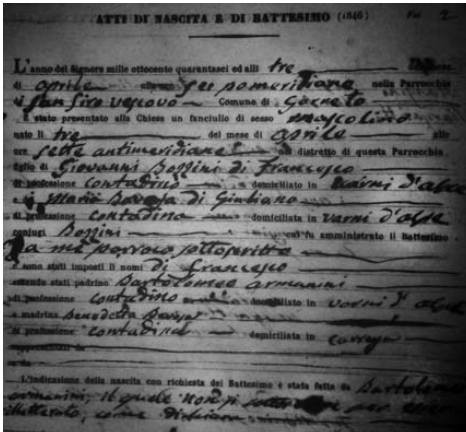 ATTI DI NASCITA E DI BATTESIMO (1846)
L'anno del Signore mille ottocento quarantasei ed alli tre
di aprile alle ore sei pomeridiane nella Parrocchia
di san siro vescovo Comune di
è stato presentato alla Chiesa un fanciullo di sesso mascolino
nato li tre del mese di aprile alle
ore sette antimeridiane nel distretto di questa Parrocchia
figlio di Giovanni Bozzini di Francesco
di professione contadino domiciliato in varni d'alse
e di Maria di Giuliano
di professione contadina domiciliata in varni d'alse
conjugi Bozzini cui fu amministrato il Battesimo
da me parroco sottoscritto
e sono stati imposti li nomi di francesco
essendo stati padrino Bartolomeo armanini
di professione contadino domiciliato in varni d'alse
e madrina Benedetta
di professione contadina domiciliata in
L'indicazione della nascita con richiesta del Battesimo è stata fatta da
armanini, il quale non si per essere
illetterato, come